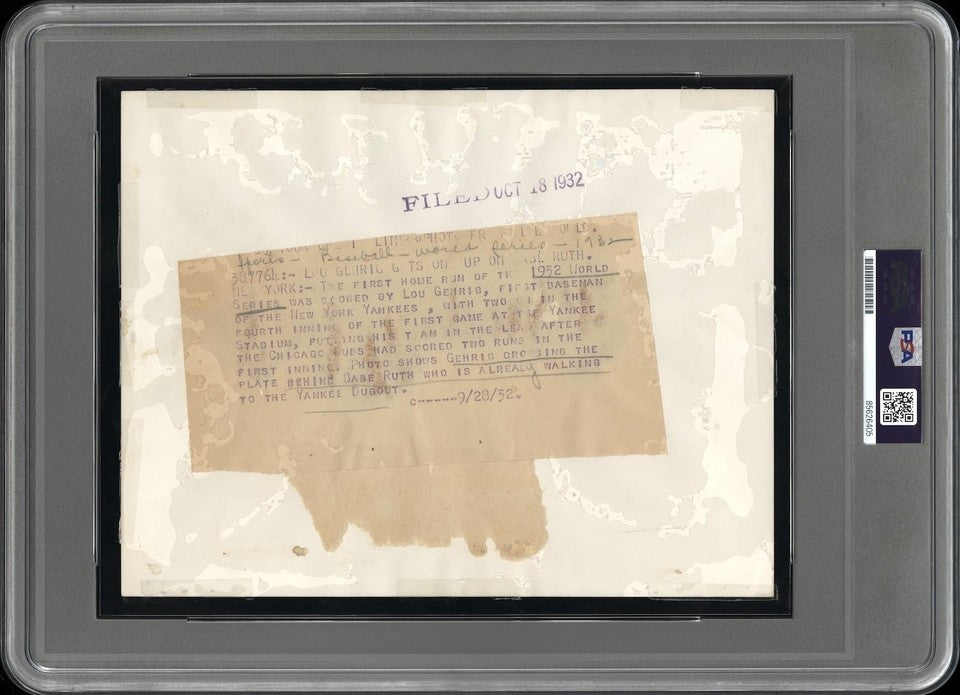 FILED OCT 18 1932
Sports - Baseball - World Series - 1932
387764:- LOU GEHRIG GETS ONE UP ON BABE RUTH.
NEW YORK:- THE FIRST HOME RUN OF THE 1932 WORLD
SERIES WAS SCORED BY LOU GEHRIG, FIRST BASEMAN
OF THE NEW YORK YANKEES, WITH TWO IN THE
FOURTH INNING OF THE FIRST GAME AT THE YANKEE
STADIUM, PUTTING HIS TEAM IN THE LEAD AFTER
THE CHICAGO CUBS HAD SCORED TWO RUNS IN THE
FIRST INNING. PHOTO SHOWS GEHRIG CROSSING THE
PLATE BEHIND BABE RUTH WHO IS ALREADY WALKING
TO THE YANKEE DUGOUT.
C------9/28/32.
PSA
85626405